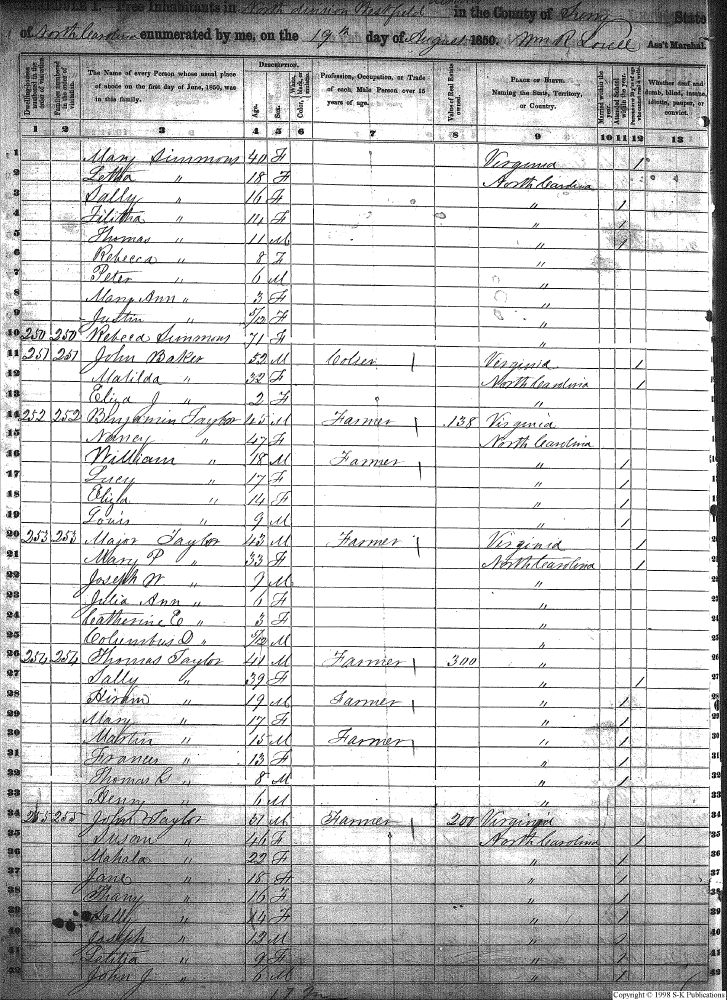 SCHEDULE I.—Free Inhabitants in North division Westfield in the County of State
of North Carolina enumerated by me, on the 19th day of August 1850. Wm R Ass't Marshal.
Dwelling-houses numbered in the order of visitation.
Families numbered in the order of visitation.
The Name of every Person whose usual place of abode on the first day of June, 1850, was in this family.
DESCRIPTION.
Age.
Sex.
Color, White, black, or mulatto.
Profession, Occupation, or Trade of each Male Person over 15 years of age.
Value of Real Estate owned.
PLACE OF BIRTH. Naming the State, Territory, or Country.
Married within the year.
Attended School within the year.
Persons over 20 y'rs of age who cannot read & write.
Whether deaf and dumb, blind, insane, idiotic, pauper, or convict.
1 2 3 4 5 6 7 8 9 10 11 12 13
1 Mary Simmons 40 F Virginia /
2 Letha " 18 F North Carolina
3 Sally " 16 F " /
4 " 14 F " /
5 Thomas " 11 M " /
6 Rebecca " 8 F "
7 Peter " 6 M "
8 Mary Ann " 3 F "
9 Justin " F "
10 250 250 Rebeca Simmons 71 F "
11 251 251 John Baker 52 M Virginia /
12 Matilda " 32 F North Carolina /
13 Eliza J " 2 F "
14 252 252 Benjamin Taylor 45 M Farmer 138 Virginia
15 Nancy " 47 F North Carolina
16 William " 18 M Farmer " /
17 Lucy " 17 F " /
18 Eliza " 14 F " /
19 Louis " 9 M " /
20 253 253 Major Taylor 43 M Farmer Virginia /
21 Mary P " 33 F North Carolina /
22 Joseph W " 9 M "
23 Julia Ann " 6 F "
24 Catherine E " 3 F "
25 Columbus D " M "
26 254 254 Thomas Taylor 41 M Farmer 300 "
27 Sally " 39 F " /
28 Hiram " 19 M Farmer " /
29 Mary " 17 F " /
30 Martin " 15 M Farmer " /
31 Frances " 13 F " /
32 Thomas G " 8 M " /
33 Henry " 6 M "
34 255 255 John Taylor 51 M Farmer 200 Virginia
35 Susan " 46 F North Carolina /
36 Mahala " 22 F " /
37 Jane " 18 F " /
38 " 16 F " /
39 Sally " 14 F " /
40 Joseph " 12 M " /
41 Letitia " 9 F " /
42 John J " 6 M " /
Copyright © 1998 S-K Publications